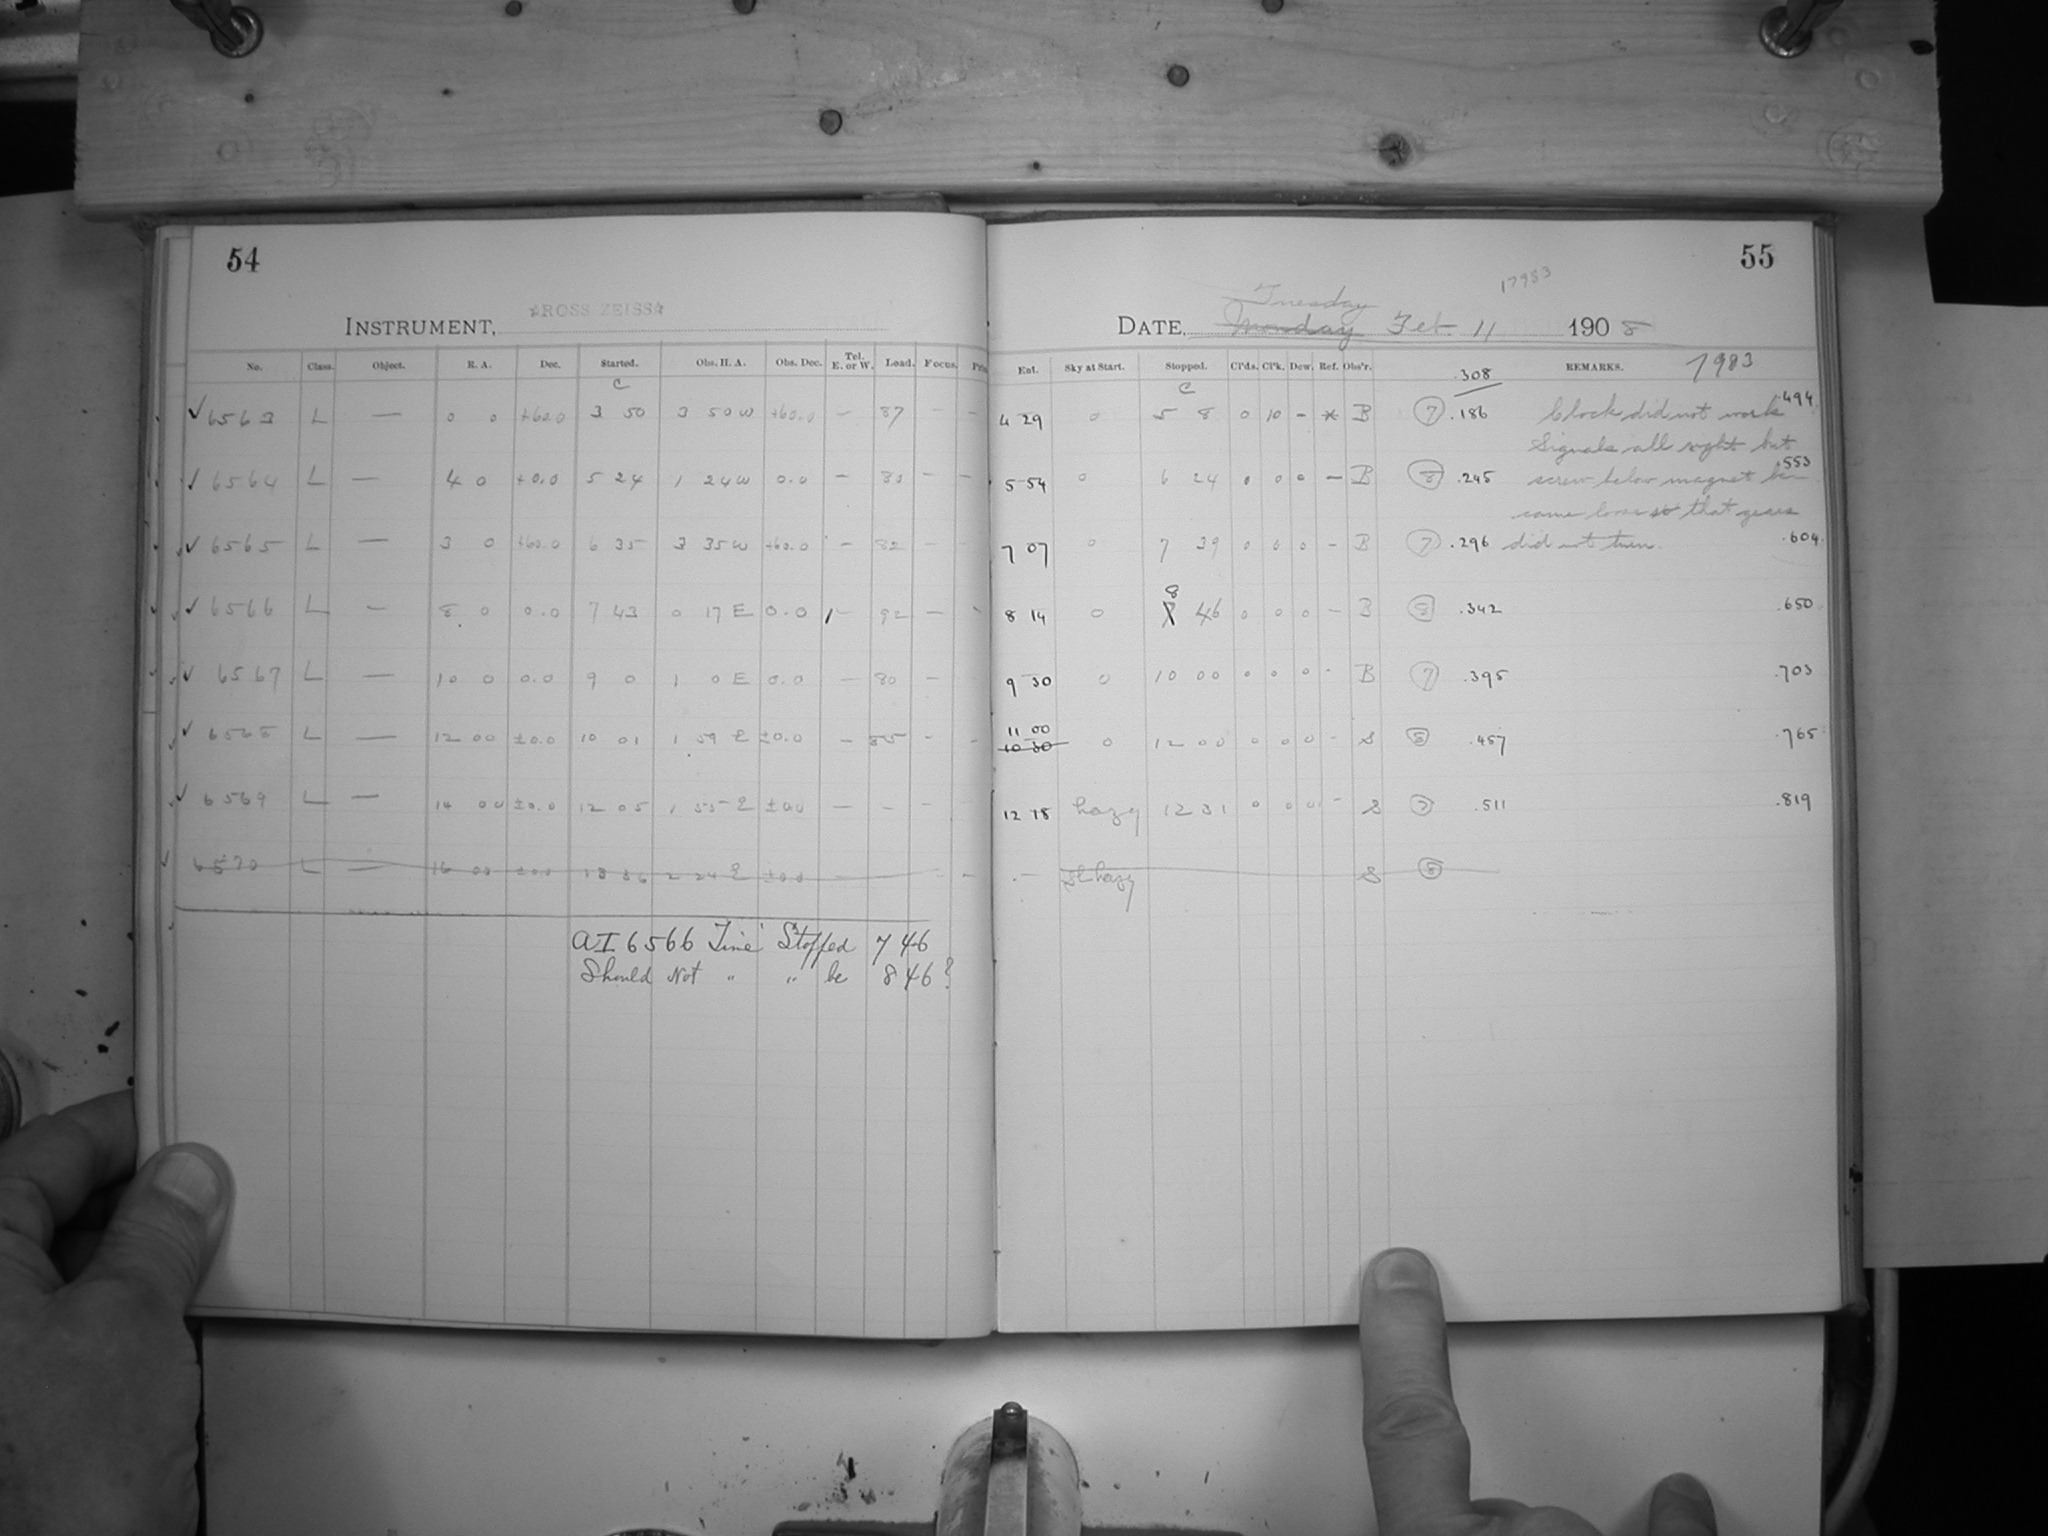 54
INSTRUMENT, ☆ROSS ZEISS☆
No. Class. Object. R. A. Dec. Started. Obs. H. A. Obs. Dec. Tel. E. or W. Load. Focus.
C
✓ 6563 L — 0 0 +60.0 3 50 3 50 W +60.0 — 87 — —
✓ 6564 L — 4 0 +0.0 5 24 1 24 W 0.0 — — —
✓ 6565 L — 3 0 +60.0 6 35 3 35 W +60.0 — 82 — —
✓ 6566 L — 8 0 0.0 7 43 0 17 E 0.0 — 92 — —
✓ 6567 L — 10 0 0.0 9 0 1 0 E 0.0 — 80 —
✓ 6568 L — 12 00 ±0.0 10 01 1 59 E ±0.0 — 85 — —
✓ 6569 L — 14 00 ±0.0 12 05 1 55 E ±0.0 — — —
✓ 6570 L — 16 00 ±0.0 13 36 2 24 E ±0.0 — —
AI 6566 Time Stopped 7 46
Should Not " " be 8 46?
55
17983
Tuesday
DATE, Monday Feb 11 1908
Ent. Sky at Start. Stopped. Cl'ds. Cl'k. Dew. Ref. Obs'r. REMARKS. 7983
C .308
4 29 0 5 8 0 10 — * B 7 .186 Clock did not work .494
Signals all right but
5 54 0 6 24 0 0 0 — B 8 .245 screw below magnet be- .553
came loose so that gears
7 07 0 7 39 0 0 0 — B 7 .296 did not turn. .604
8
8 14 0 7 46 0 0 0 — B 8 .342 .650
9 30 0 10 00 0 0 0 - B 7 .395 .703
11 00
10 30 0 12 00 0 0 0 - S 8 .457 .765
12 18 hazy 12 31 0 0 0 - S 7 .511 .819
— sl hazy S 8